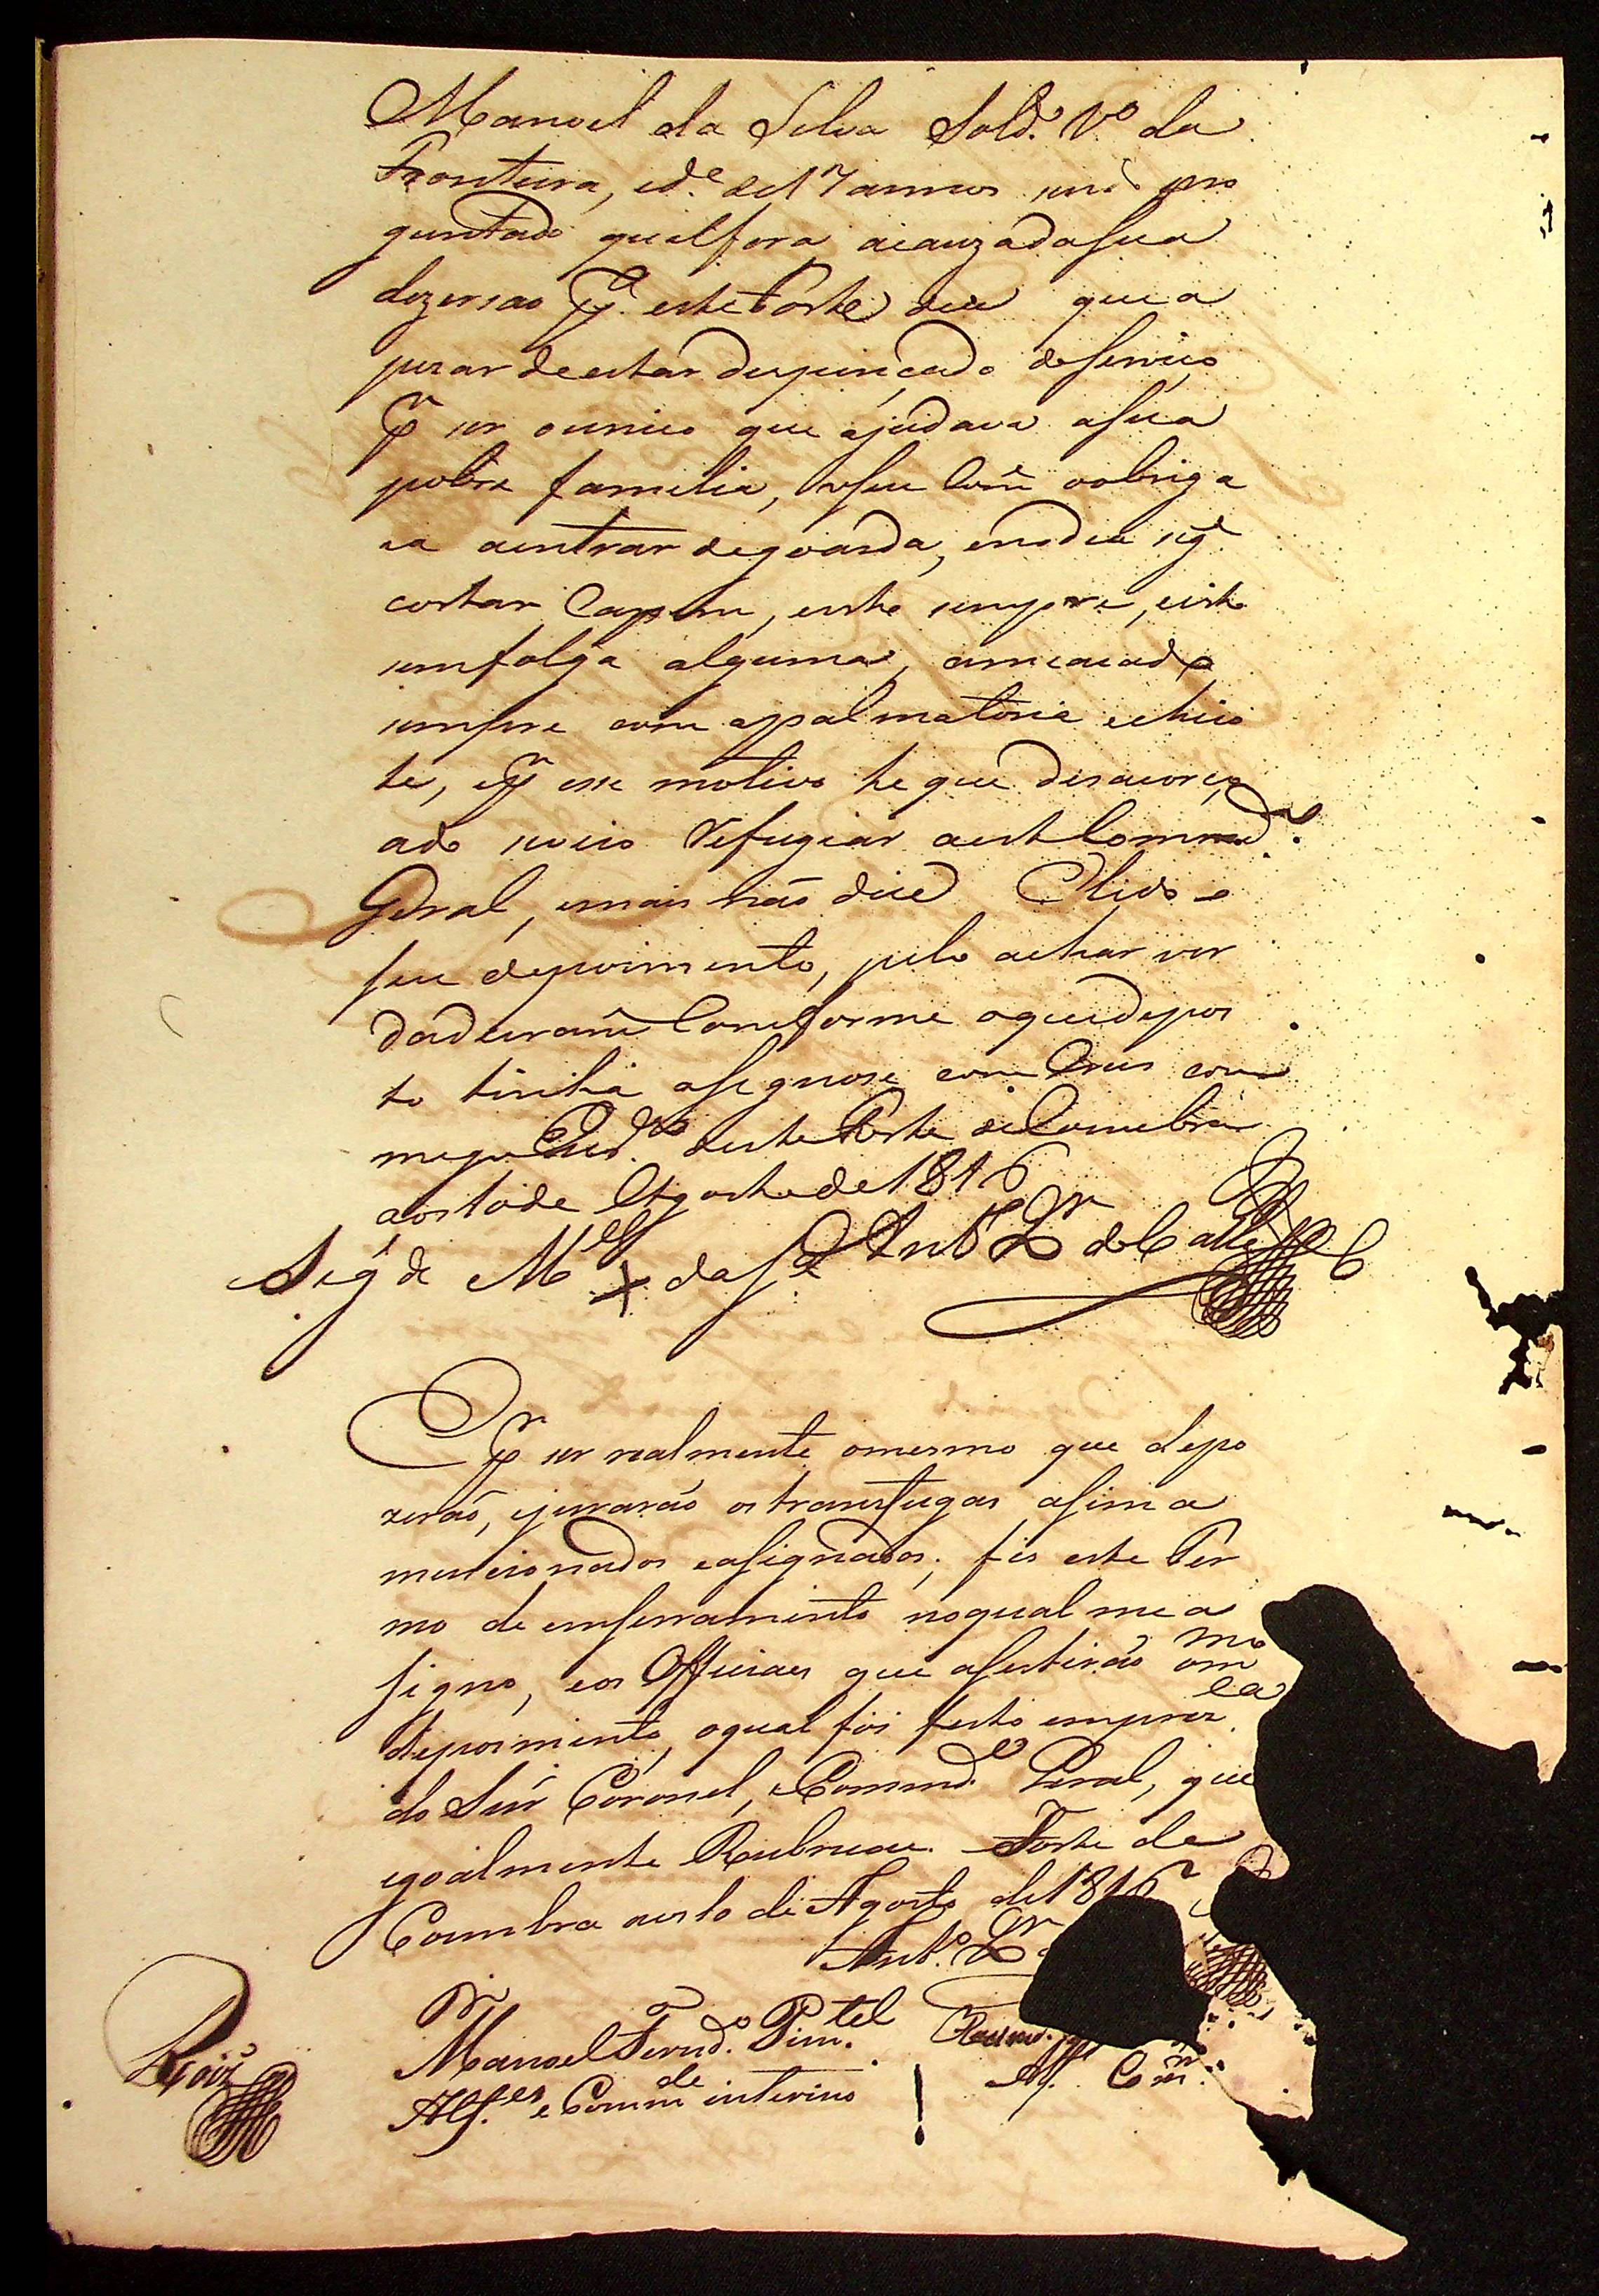 Manoel da Silva Sold.º V.º da
Fronteira, id.e de 17 annos sendo per
guntado qual fora a cauza da sua
dezersao p.ª este Forte dice que a
pezar de estar despençado do serviço
p.r ser o unico que ajudava a sua
pobre familia, o seu Com.e o obriga
va a entrar de goarda, e no dia seg.e
cortar Capim, e isto sempre, e isto
sem folga alguma, ameaçado
sempre com a palmatoria e chico
te, e p.r esse motivo he que desacorço
ado se veio Refugiar a este Commd.e
Geral, e mais não dice Lido o
seu depoimento, pelo achar ver
dadeiram.e Comforme o que depos
to tinha asignose com Crus com
migo deste Forte de Coimbra
aos 10 de Agosto de 1816
Sig.l de M.el + da S.ª Ant.º Roiz
P.r ser realmente o mesmo que depo
zerão, e jurarão os transfugas asima
mencionados e asignados, fis este Ter
mo de emserramento no qual me a
signo, e os Officiaes que asestirão ao m.mo
depoimento, o qual foi feito em prez.ca
do Snr Coronel, e Commd.e Geral, que
egoalmente Rubricou. Forte de
Coimbra aos 10 de Agosto de 1816
Ant.º Roiz
Manoel Fernd.o Pim.tel
Alf.es e Comm.de interino
Alf.